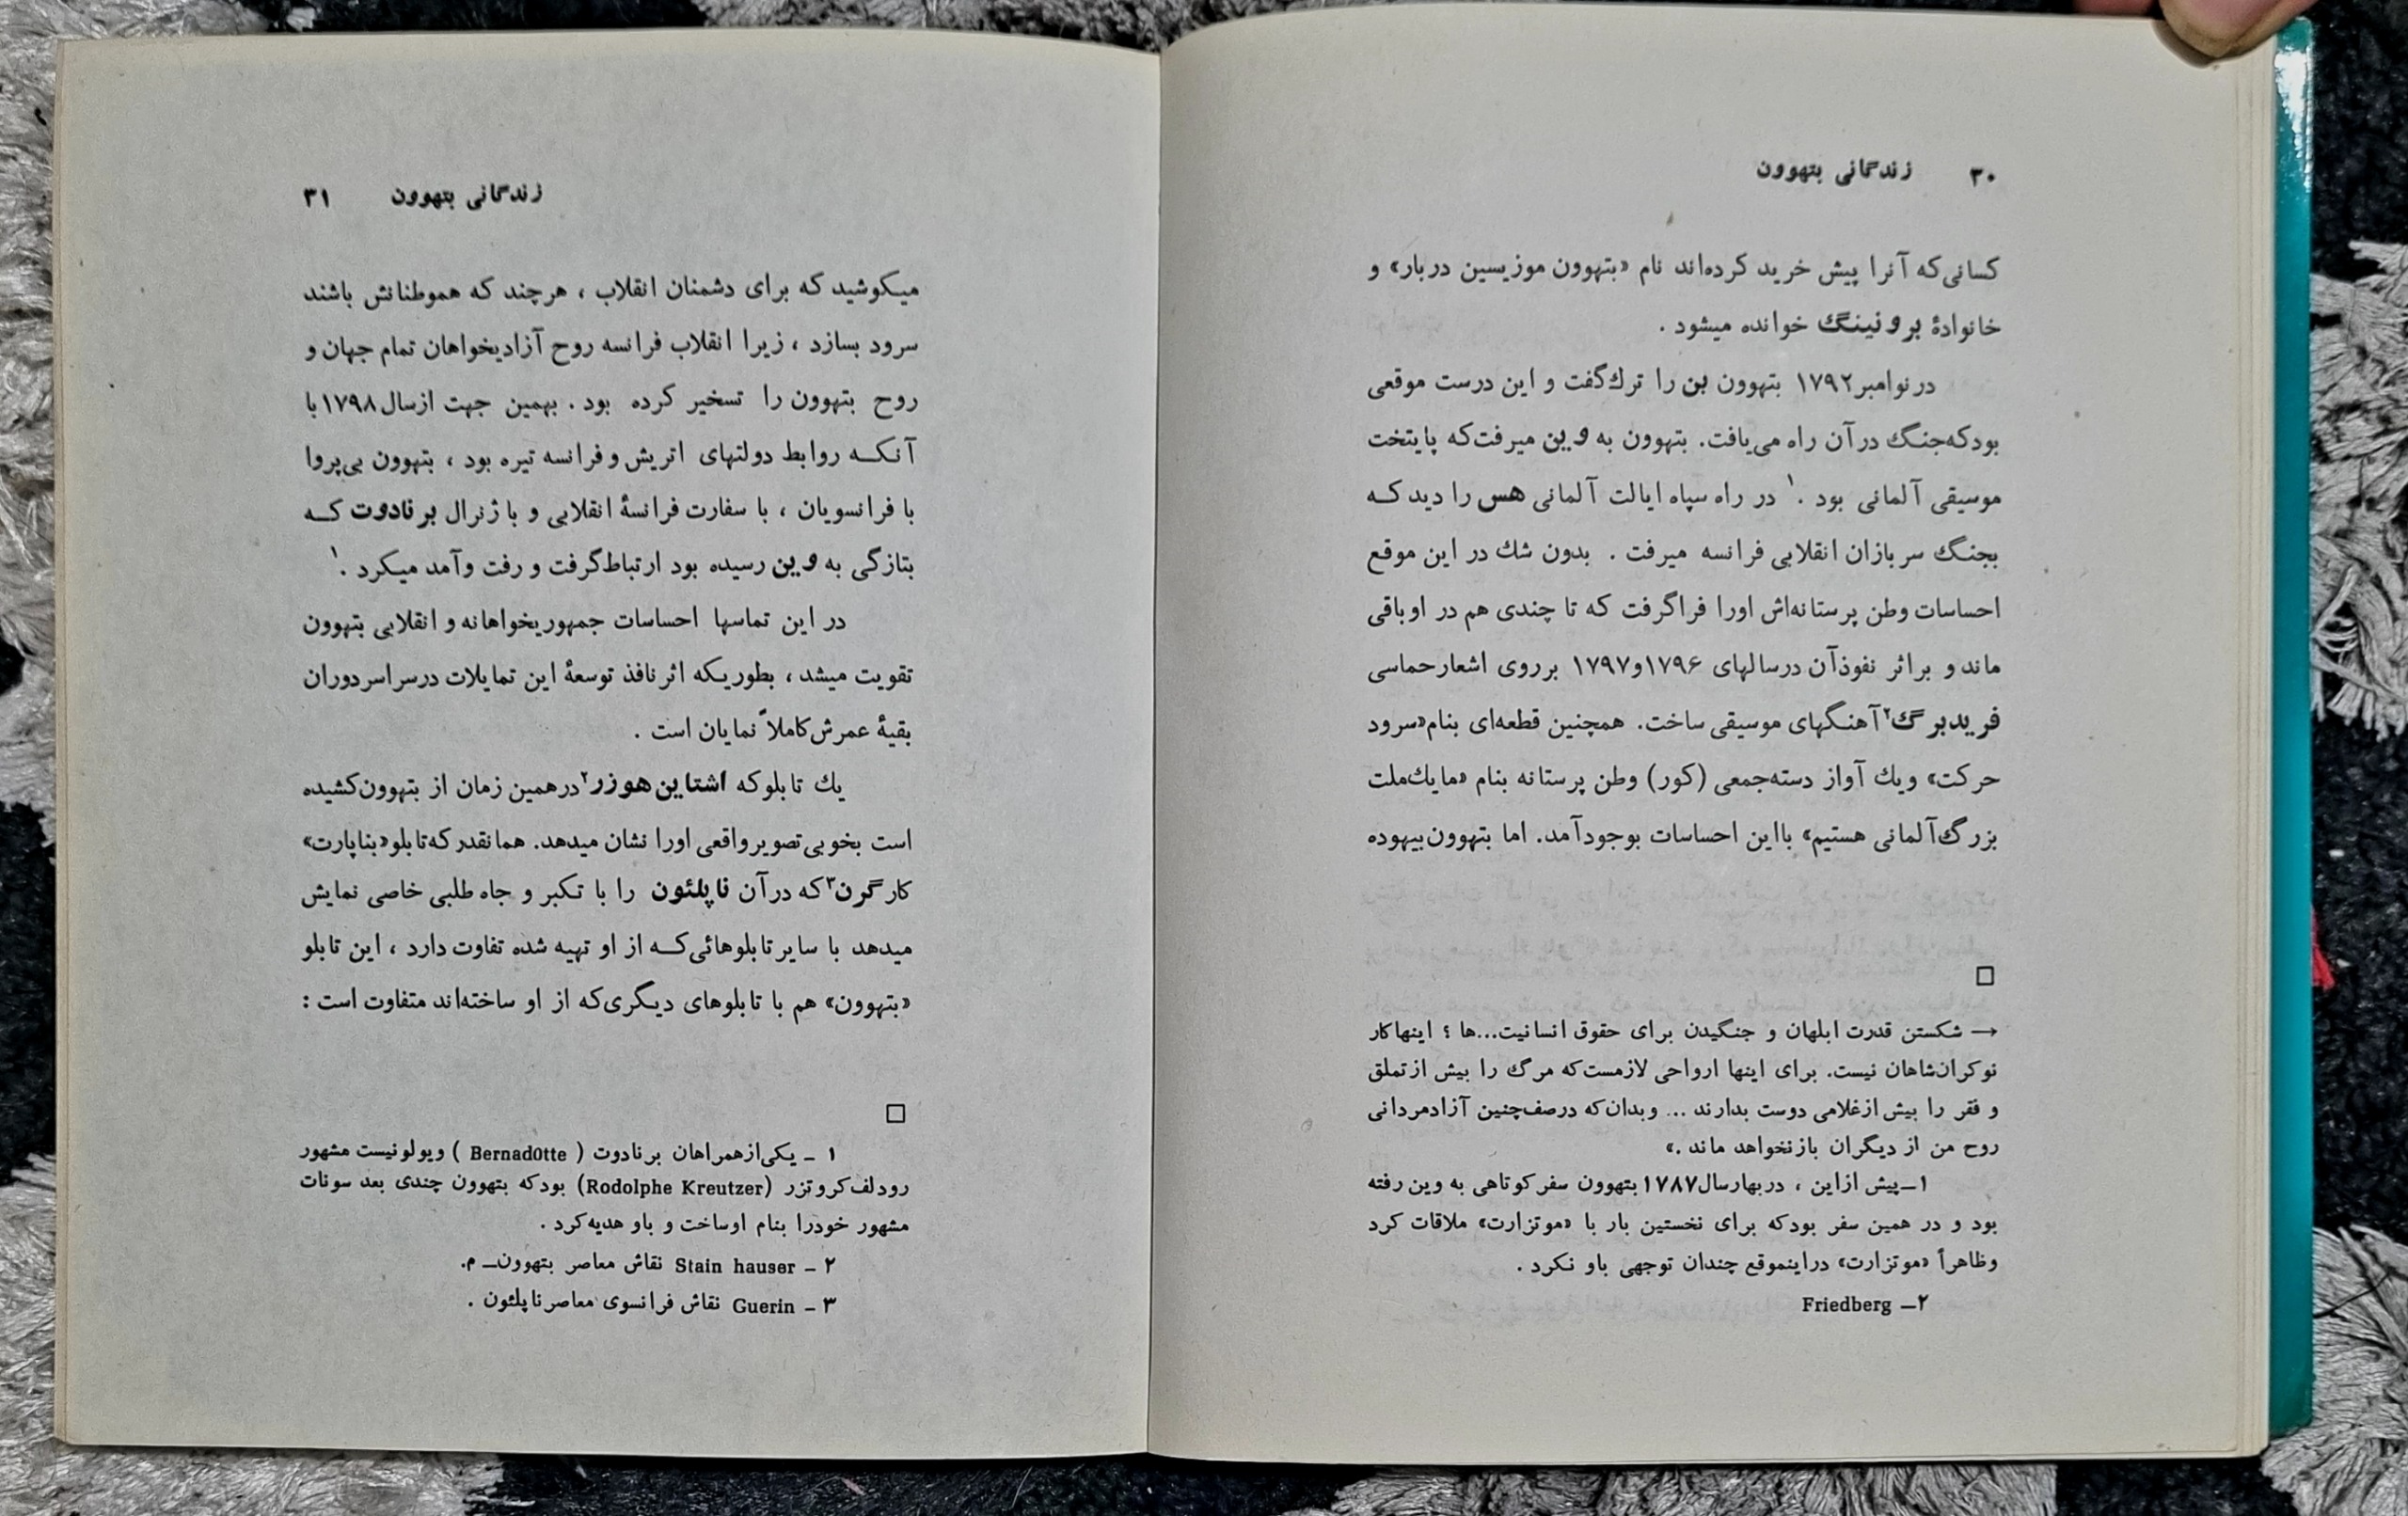 ۳۰ زندگانی بتهوون
کسانی‌که آنرا پیش خرید کرده‌اند نام «بتهوون موزیسین دربار» و
خانوادهٔ برونینگ خوانده میشود .
در نوامبر ۱۷۹۲ بتهوون بن را ترك گفت و این درست موقعی
بود که جنگ در آن راه می‌یافت. بتهوون به وین میرفت که پایتخت
موسیقی آلمانی بود .۱ در راه سپاه ایالت آلمانی هس را دید کـه
بجنگ سربازان انقلابی فرانسه میرفت . بدون شك در این موقع
احساسات وطن پرستانه‌اش اورا فراگرفت که تا چندی هم در او باقی
ماند و براثر نفوذ آن درسالهای ۱۷۹۶و۱۷۹۷ برروی اشعار حماسی
فریدبرگ۲ آهنگهای موسیقی ساخت. همچنین قطعه‌ای بنام «سرود
حرکت» ویك آواز دسته‌جمعی (کور) وطن پرستانه بنام «مایك ملت
بزرگ آلمانی هستیم» بااین احساسات بوجود آمد. اما بتهوون بیهوده
□
→ شکستن قدرت ابلهان و جنگیدن برای حقوق انسانیت...ها ؛ اینها کار
نوکران شاهان نیست. برای اینها ارواحی لازمست که مرگ را بیش از تملق
و فقر را بیش از غلامی دوست بدارند ... وبدان که درصف چنین آزادمردانی
روح من از دیگران باز نخواهد ماند .»
۱ــ پیش ازاین ، دربهار سال ۱۷۸۷ بتهوون سفر کوتاهی به وین رفته
بود و در همین سفر بود که برای نخستین بار با «موتزارت» ملاقات کرد
وظاهراً «موتزارت» دراینموقع چندان توجهی باو نکرد .
۲ــ Friedberg
زندگانی بتهوون ۳۱
میـکوشید که برای دشمنان انقلاب ، هرچند که هموطنانش باشند
سرود بسازد ، زیرا انقلاب فرانسه روح آزادیخواهان تمام جهان و
روح بتهوون را تسخیر کرده بود . بهمین جهت ازسال ۱۷۹۸ با
آنکـه روابط دولتهای اتریش و فرانسه تیره بود ، بتهوون بی‌پروا
با فرانسویان ، با سفارت فرانسهٔ انقلابی و با ژنرال برنادوت کـه
بتازگی به وین رسیده بود ارتباط گرفت و رفت وآمد میـکرد .۱
در این تماسها احساسات جمهوریخواهانه و انقلابی بتهوون
تقویت میشد ، بطوریـکه اثر نافذ توسعهٔ این تمایلات درسراسر دوران
بقیهٔ عمرش کاملاً نمایان است .
یك تابلو که اشتاین هوزر۲ درهمین زمان از بتهوون کشیده
است بخوبی تصویر واقعی اورا نشان میدهد. همانقدر که تابلو «بناپارت»
کار گرن۳ که در آن ناپلئون را با تـکبر و جاه طلبی خاصی نمایش
میدهد با سایر تابلوهائی کـه از او تهیه شده تفاوت دارد ، این تابلو
«بتهوون» هم با تابلوهای دیـگری که از او ساخته‌اند متفاوت است :
□
۱ – یکی از همراهان برنادوت ( Bernadotte ) ویولونیست مشهور
رودلف کروتزر (Rodolphe Kreutzer) بود که بتهوون چندی بعد سونات
مشهور خودرا بنام اوساخت و باو هدیه کرد .
۲ – Stain hauser نقاش معاصر بتهوون ــ م.
۳ – Guerin نقاش فرانسوی معاصر ناپلئون .